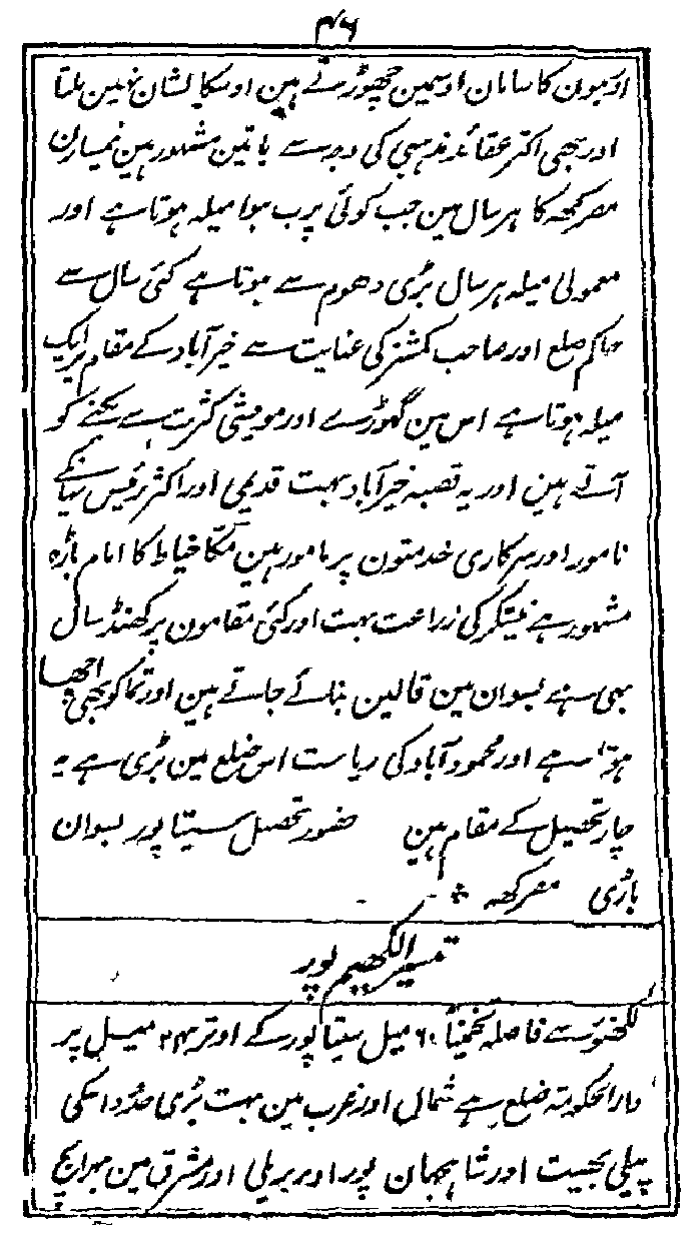 ۴۶
آدمیون کا سامان اوسمین چھوڑتے ہین اوسکا نشان نہین ملتا
اور بھی اکثر عقائد مذہبی کی وجہ سے باتین مشہور ہین نیمسارن
مصرکھہ کا ہر سال مین جب کوئی پرب ہوا میلہ ہوتا ہے اور
معمولی میلہ ہر سال بڑی دھوم سے ہوتا ہے کئی سال سے
حاکم ضلع اور صاحب کمشنر کی عنایت سے خیرآباد کے مقام پر ایک
میلہ ہوتا ہے اس مین گھوڑے اور مویشی کثرت سے بکنے کو
آتے ہین اور یہ قصبہ خیرآباد بہت قدیمی اور اکثر رئیس یہانکے
نامور اور سرکاری خدمتون پر مامور ہین مکا خیاط کا امام باڑہ
مشہور ہے نیشکر کی زراعت بہت اور کئی مقامون پر کھنڈ سال
بھی ہے بسوان مین قالین بنائے جاتے ہین اور تماکو بھی اچھا
ہوتا ہے اور محمود آباد کی ریاست اس ضلع مین بڑی ہے یہ
چار تحصیل کے مقام ہین حضور تحصل سیتاپور بسوان
باڑی مصرکھہ
تیسرا لکھیم پور
لکھنؤ سے فاصلہ تخمیناً ۶۰ میل سیتاپور کے اوتر ۲۴ میل پر
دارالحکومتہ ضلع ہے شمال اور غرب مین بہت بڑی حدود اسکی
پیلی بھیت اور شاہجہان پور اور بریلی اور مشرق مین بہرائچ